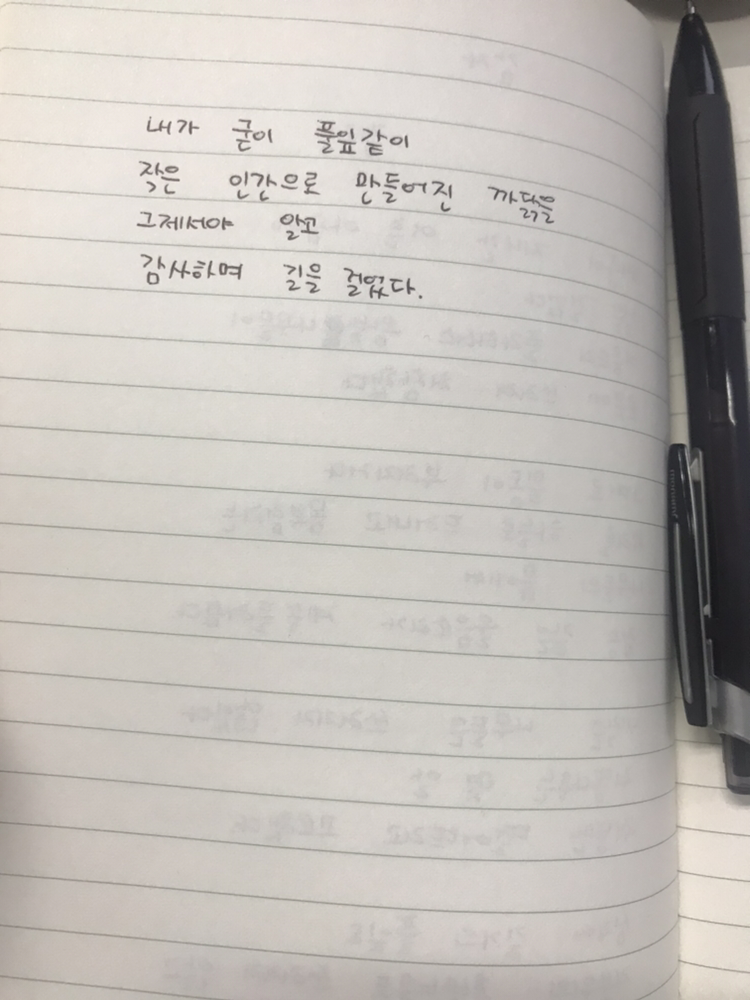 내가 굳이 풀잎같이
작은 인간으로 만들어진 까닭을
그제서야 알고
감사하며 길을 걸었다.